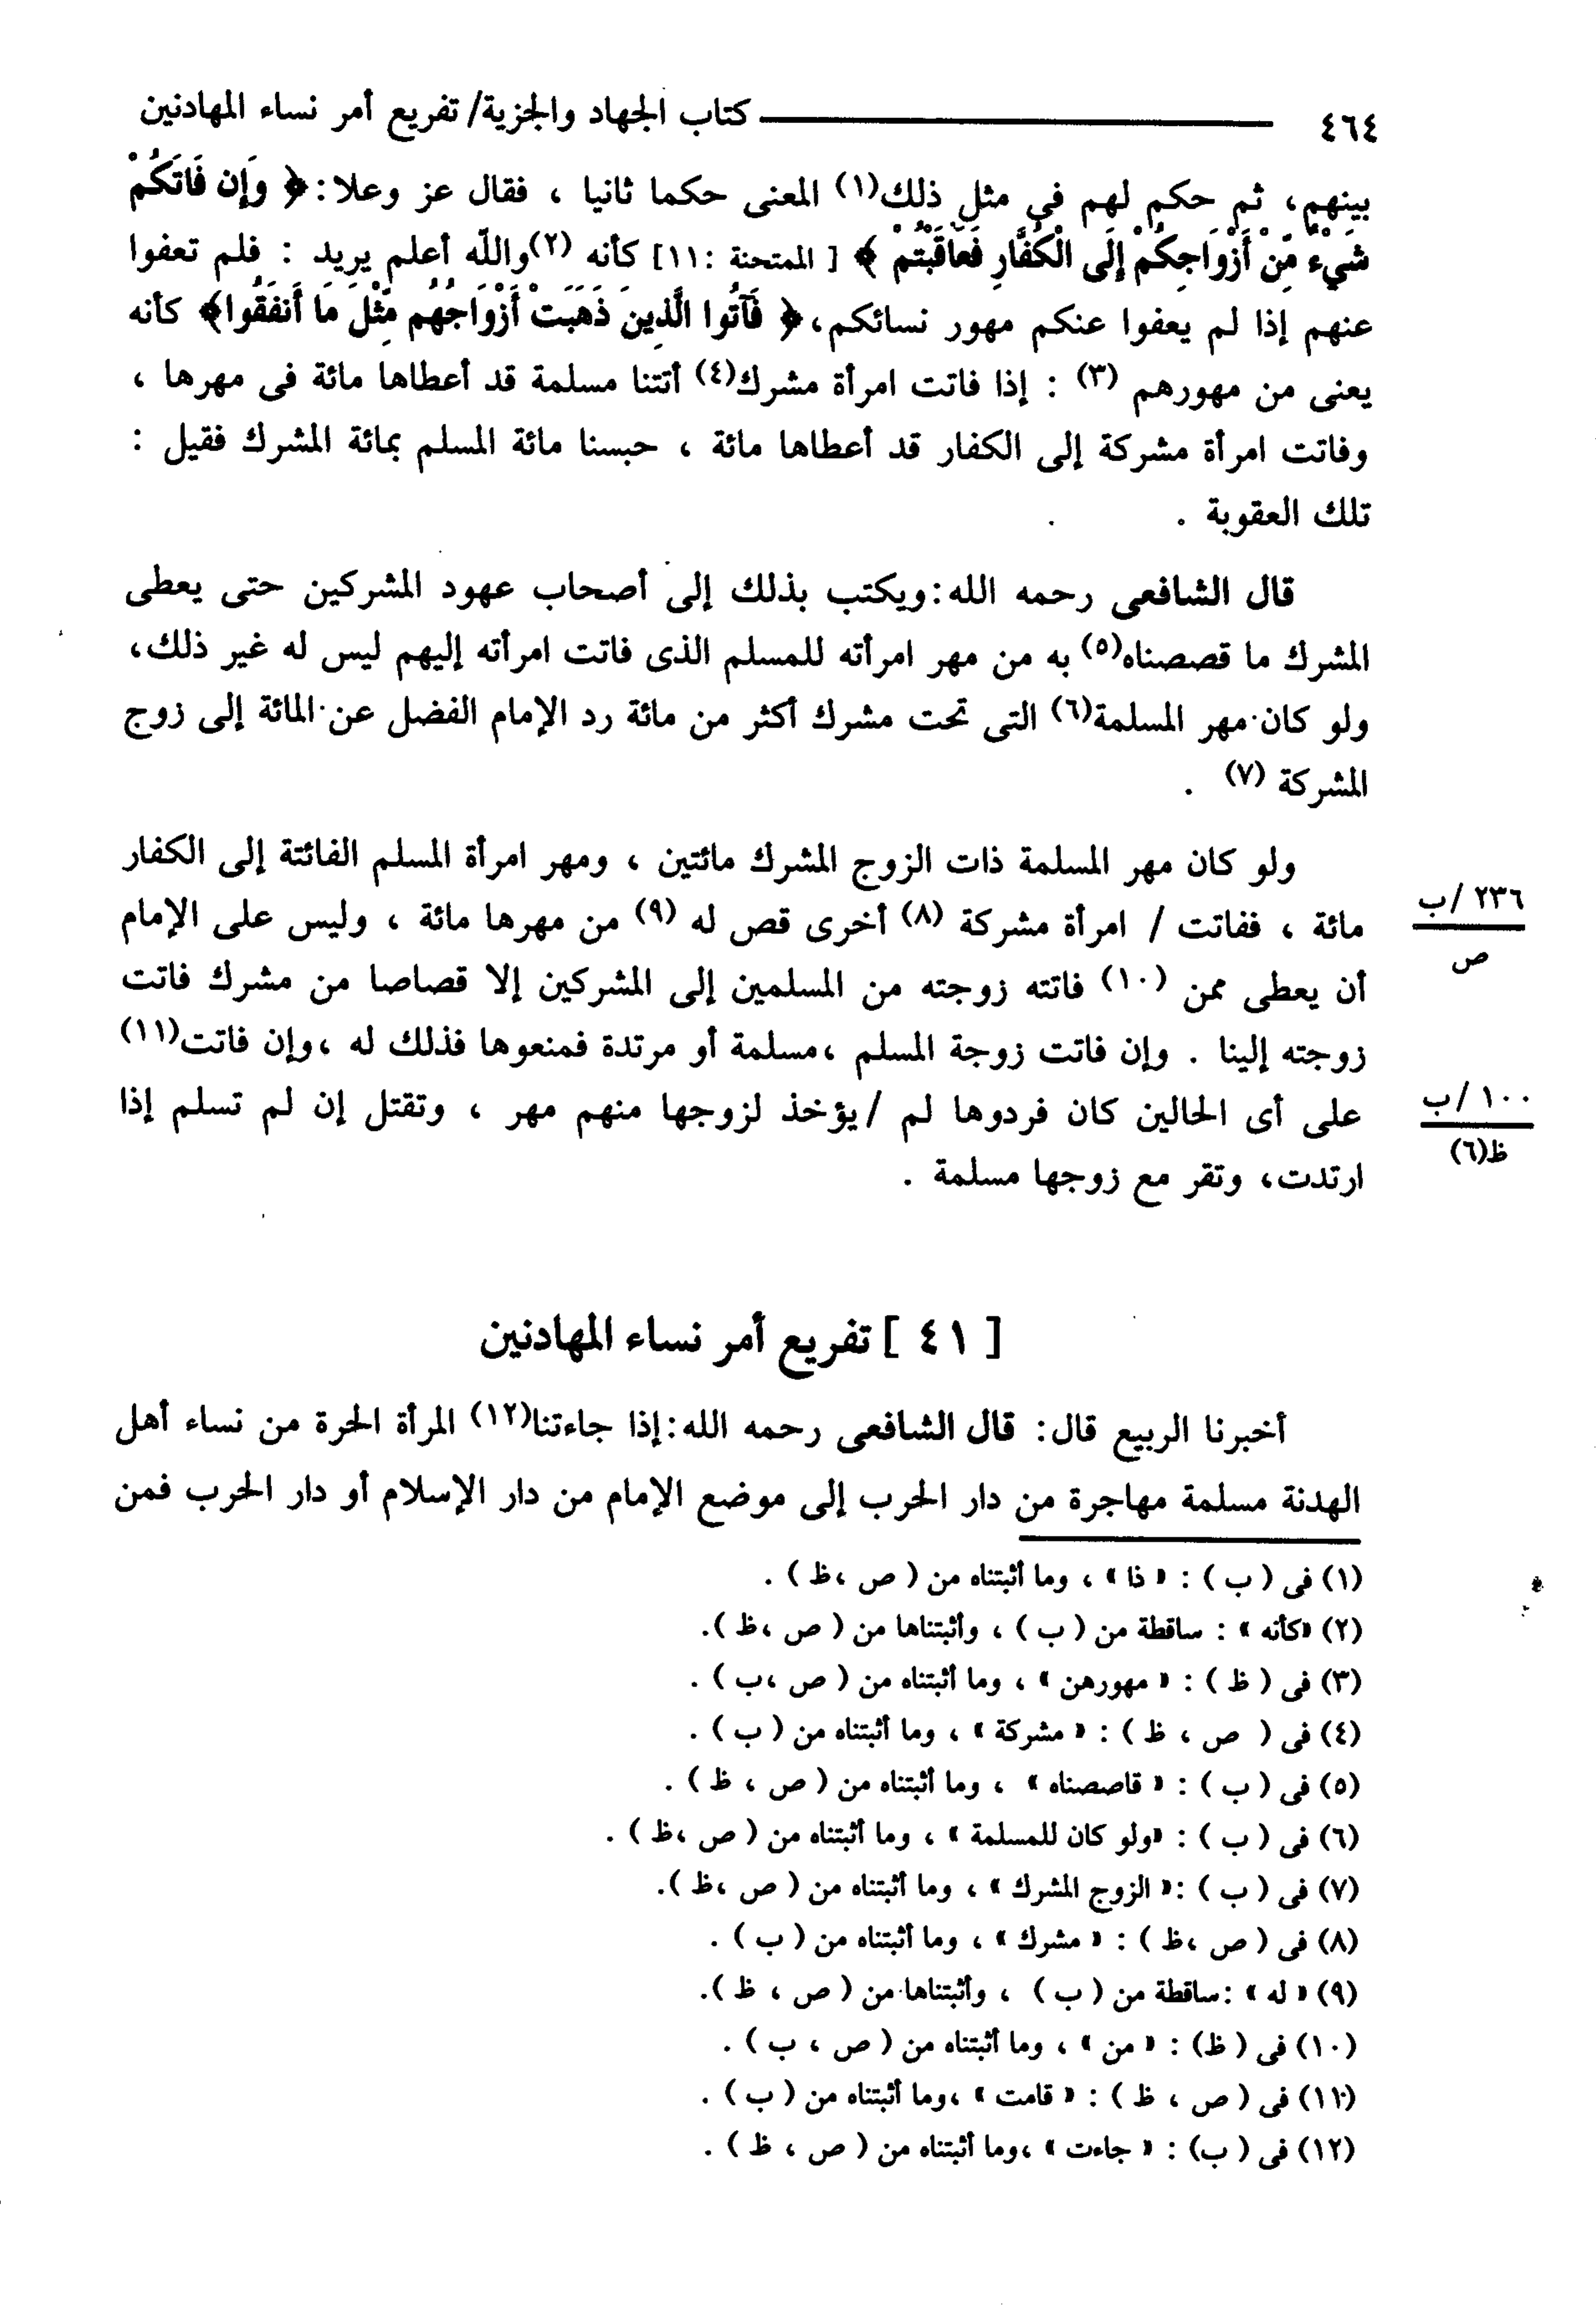 ٤٦٤ ــــــــــــــــــــ كتاب الجهاد والجزية/ تفريع أمر نساء المهادنين
بينهم، ثم حكم لهم فى مثل ذلك(١) المعنى حكما ثانيا ، فقال عز وعلا: ﴿ وَإِن فَاتَكُمْ
شَيْءٌ مِّنْ أَزْوَاجِكُمْ إِلَى الْكُفَّارِ فَعَاقَبْتُمْ ﴾ [ الممتحنة :١١] كأنه (٢)والله أعلم يريد : فلم تعفوا
عنهم إذا لم يعفوا عنكم مهور نسائكم، ﴿ فَآتُوا الَّذِينَ ذَهَبَتْ أَزْوَاجُهُم مِّثْلَ مَا أَنفَقُوا﴾ كأنه
يعنى من مهورهم (٣) : إذا فاتت امرأة مشرك(٤) أتتنا مسلمة قد أعطاها مائة فى مهرها ،
وفاتت امرأة مشركة إلى الكفار قد أعطاها مائة ، حبسنا مائة المسلم بمائة المشرك فقيل :
تلك العقوبة .
قال الشافعى رحمه الله:ويكتب بذلك إلى أصحاب عهود المشركين حتى يعطى
المشرك ما قصصناه(٥) به من مهر امرأته للمسلم الذى فاتت امرأته إليهم ليس له غير ذلك،
ولو كان مهر المسلمة(٦) التى تحت مشرك أكثر من مائة رد الإمام الفضل عن المائة إلى زوج
المشركة (٧) .
ولو كان مهر المسلمة ذات الزوج المشرك مائتين ، ومهر امرأة المسلم الفائتة إلى الكفار
٢٣٦ /ب
مائة ، ففاتت / امرأة مشركة (٨) أخرى قص له (٩) من مهرها مائة ، وليس على الإمام
ص
أن يعطى ممن (١٠) فاتته زوجته من المسلمين إلى المشركين إلا قصاصا من مشرك فاتت
زوجته إلينا . وإن فاتت زوجة المسلم ،مسلمة أو مرتدة فمنعوها فذلك له ،وإن فاتت(١١)
١٠٠ /ب
على أى الحالين كان فردوها لم /يؤخذ لزوجها منهم مهر ، وتقتل إن لم تسلم إذا
ظ(٦)
ارتدت، وتقر مع زوجها مسلمة .
[ ٤١ ] تفريع أمر نساء المهادنين
أخبرنا الربيع قال: قال الشافعى رحمه الله:إذا جاءتنا(١٢) المرأة الحرة من نساء أهل
الهدنة مسلمة مهاجرة من دار الحرب إلى موضع الإمام من دار الإسلام أو دار الحرب فمن
(١) فى ( ب ) : « ذا » ، وما أثبتناه من ( ص ،ظ ) .
(٢) «كأنه » : ساقطة من ( ب ) ، وأثبتناها من ( ص ،ظ ).
(٣) فى ( ظ ) : « مهورهن » ، وما أثبتناه من ( ص ،ب ) .
(٤) فى ( ص ، ظ ) : « مشركة » ، وما أثبتناه من ( ب ) .
(٥) فى ( ب ) : « قاصصناه » ، وما أثبتناه من ( ص ، ظ ) .
(٦) فى ( ب ) : «ولو كان للمسلمة » ، وما أثبتناه من ( ص ،ظ ) .
(٧) فى ( ب ) :« الزوج المشرك » ، وما أثبتناه من ( ص ،ظ ).
(٨) فى ( ص ،ظ ) : « مشرك » ، وما أثبتناه من ( ب ) .
(٩) « له » :ساقطة من ( ب ) ، وأثبتناها من ( ص ، ظ ).
(١٠) فى ( ظ) : « من » ، وما أثبتناه من ( ص ، ب ) .
(١١) فى ( ص ، ظ ) : « قامت » ،وما أثبتناه من ( ب ) .
(١٢) فى ( ب) : « جاءت » ،وما أثبتناه من ( ص ، ظ ) .